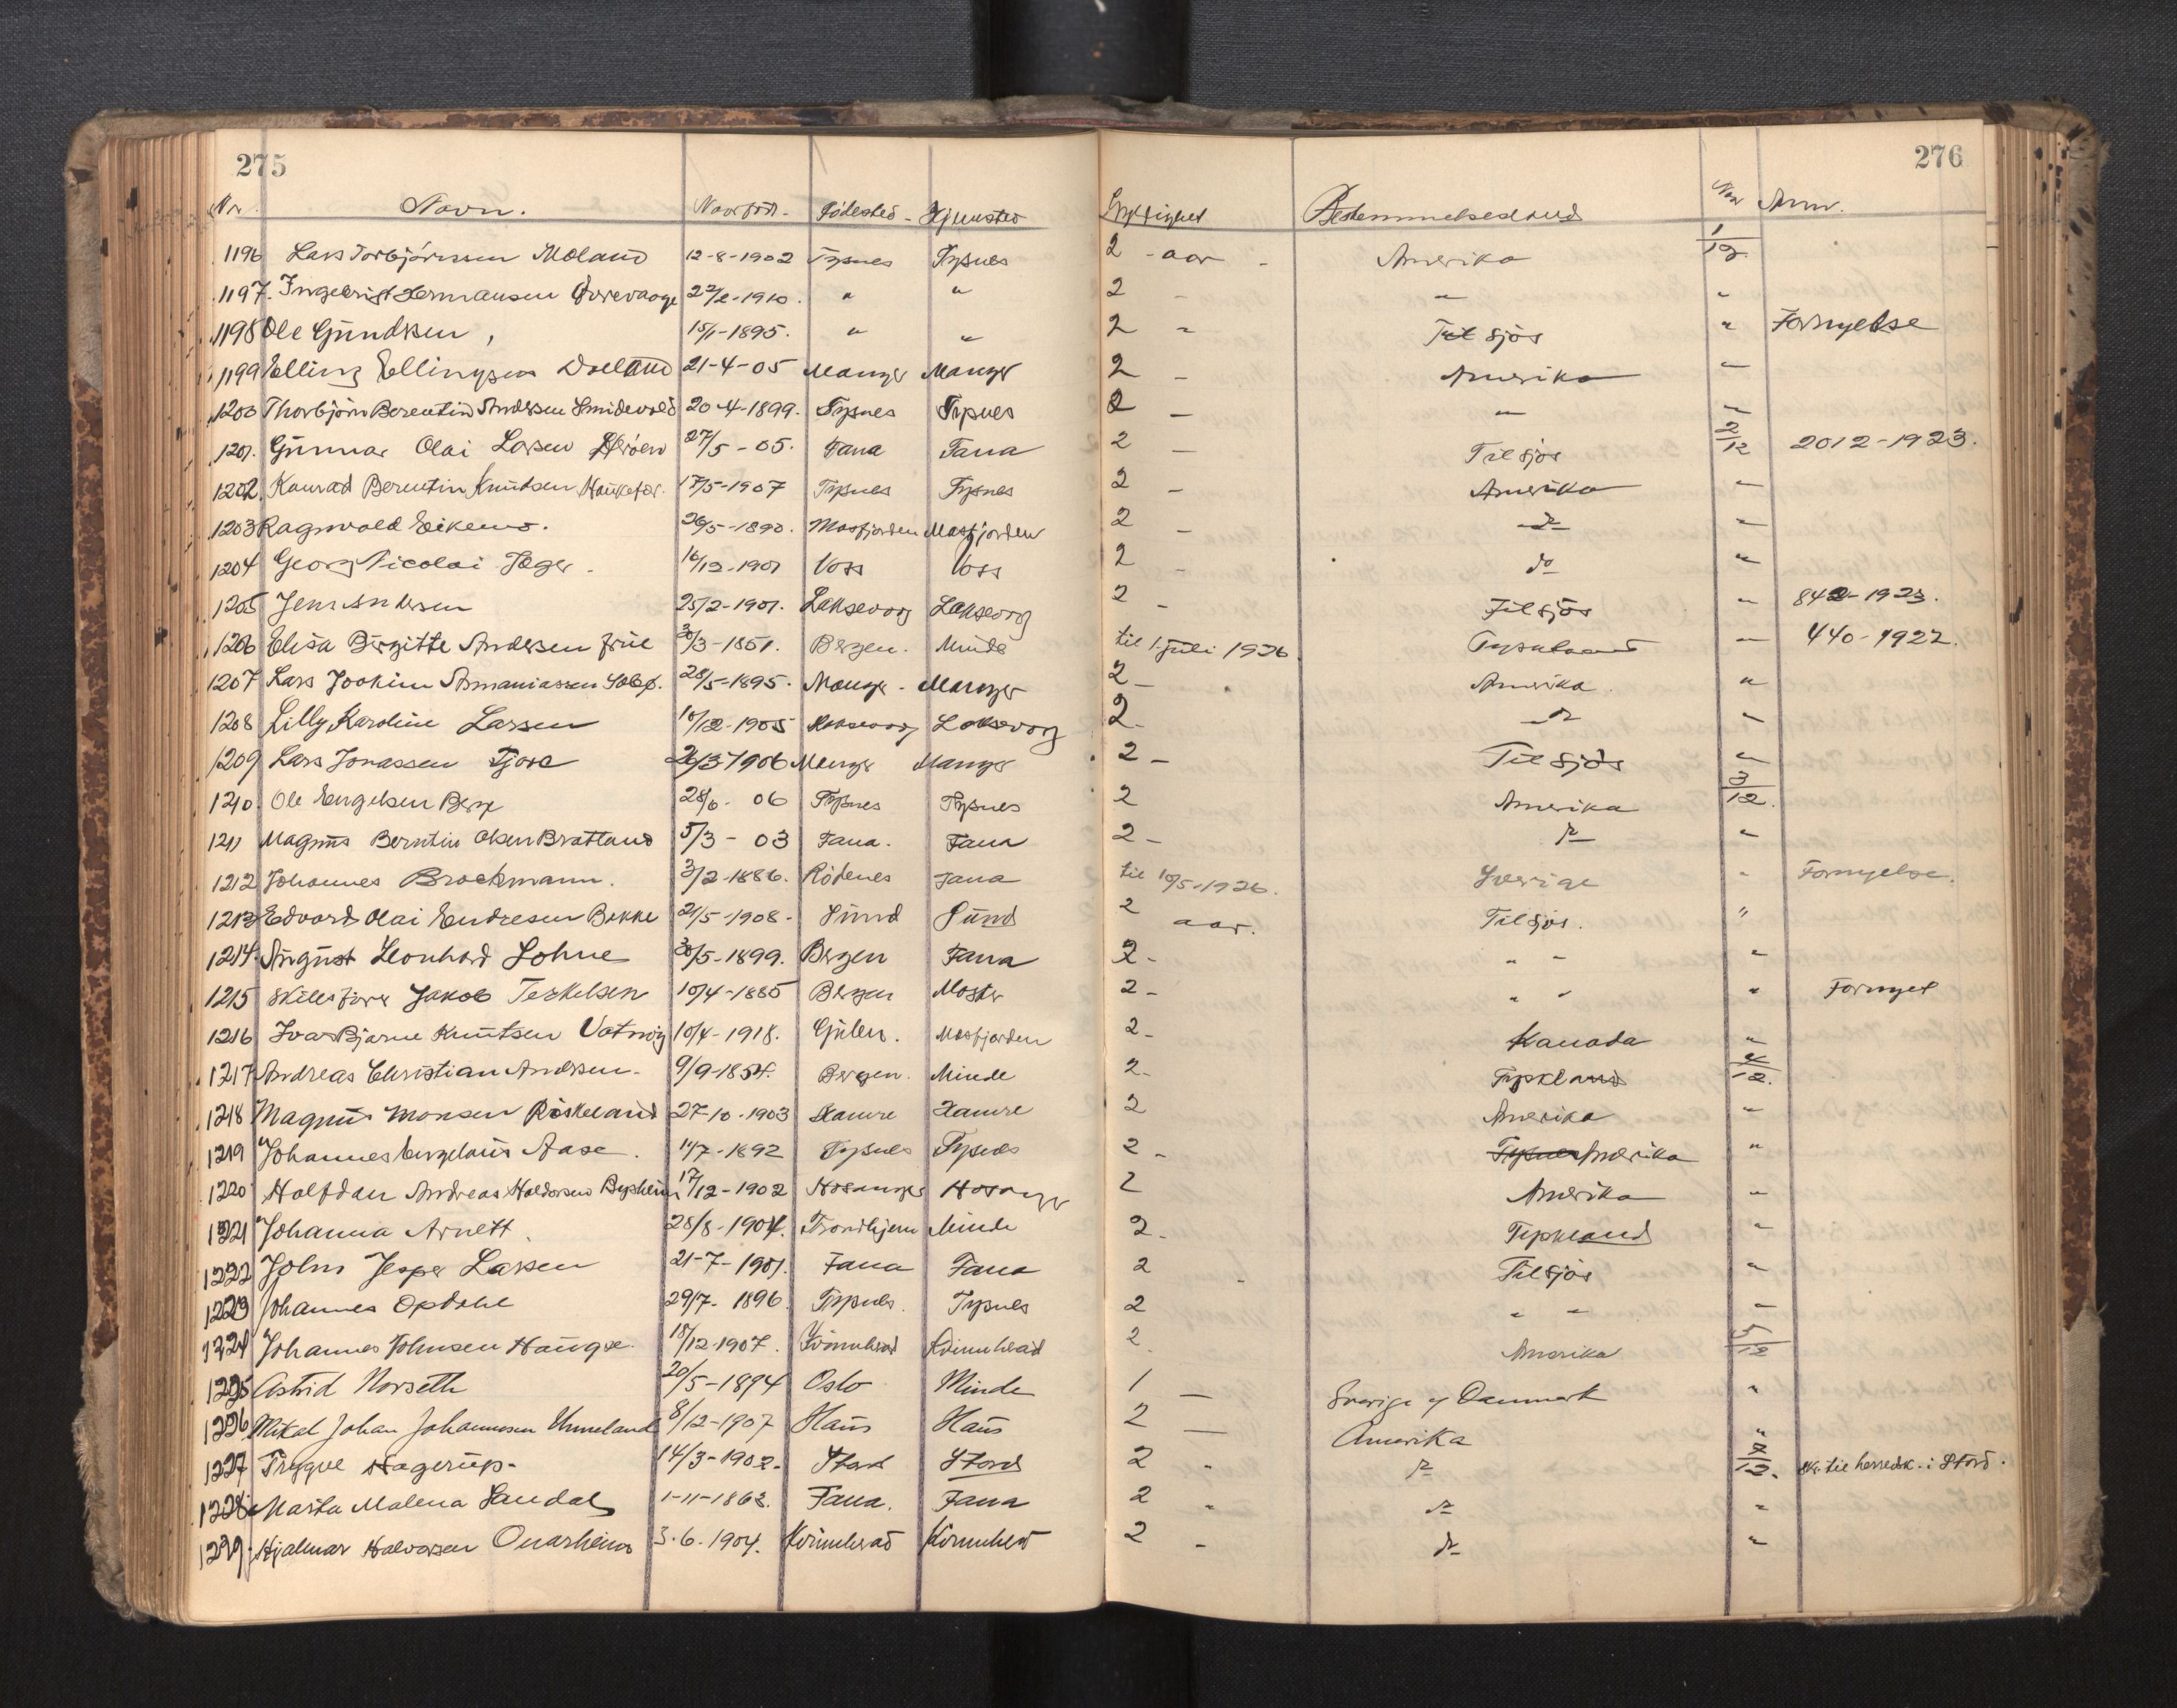 275 276
Nr. Navn. Naarfød. Fødested - Hjemsted Bestemmelsesland Naar Anm.
1196 Lars Torbjörnsen Moland 12-8-1902 Tysnes Tysnes 2 - aar - Amerika 1/12
1197. 27/2-1910. " " 2 - " "
1198 Ole Gundersen, 15/1-1895. " " 2 " Til sjös " Fornyelse
1199 Elling Ellingsen 21-4-05 Manger Manger 2 - Amerika "
1200 Thorbjörn Berentin Andersen Smidevold 20-4-1899. Tysnes Tysnes 2 - " "
1201. Gunnar Olai Larsen 27/5-05. Fana Fana 2 - Til sjös 2/12 2012-1923.
1202. Konrad Berentin Knudsen 17/5-1907 Tysnes Tysnes 2 - Amerika "
1203 Ragnvald Eikemo. 26/5-1890. Masfjorden Masfjorden 2 - do "
1204 Georg Nicolai 16/12-1901 Voss Voss 2 - do "
1205 Jens Andersen 25/2-1901. Laksevaag Laksevaag 2 - Til sjös " 842-1923.
1206 Elisa Birgitte Andersen frue 30/3-1851. Bergen. Minde til 1. juli 1926 Tyskland " 440-1922.
1207 Lars Joakim 28/5-1895. Manger - Manger 2 - Amerika. "
1208 Lilly Karoline Larsen 10/12-1905 Laksevaag Laksevaag 2 - do "
1209 Lars Jonassen 26/3-1906 Manger Manger 2 - Til sjös "
1210. Ole Engelsen Berge 28/6-06 Tysnes Tysnes 2 Amerika 3/12.
1211 Magnus Berntin Olsen Brattland 5/3-03 Fana. Fana 2 - do "
1212 Johannes Brochmann. 3/2-1886. Rödenes Fana til 10/5-1926. Sverige " Fornyelse.
1213 Edvard Olai Endresen Bekke 21/5-1908- Sund Sund 2 aar. Til sjös. "
1214. August Leonhard Lohne 30/5-1899. Bergen Fana 2 - " " "
1215 Jakob Terkelsen 10/4-1885 Bergen Moster 2 - " " " Fornyet
1216 Ivar Bjarne Knutsen 10/4-1918. Gulen. Masfjorden 2 - Kanada "
1217 Andreas Christian Andersen. 9/9-1854. Bergen. Minde 2 - Tyskland 4/12.
1218 Magnus Monsen Röskeland 27-10-1903 Hamre Hamre 2 Amerika "
1219 Johannes Engelaus Aase. 11/7-1892 Tysnes Tysnes 2 - Tysnes Amerika "
1220 Halfdan Andreas Haldorsen Bysheim 17/12-1902 Hosanger Hosanger 2 Amerika "
1221 Johanna Arnett. 28/8-1904. Trondhjem Minde 2 - Tyskland "
1222 John Jesper Larsen 21-7-1901. Fana Fana 2 - Til sjös "
1223 Johannes Opdahl 29/7-1896. Tysnes. Tysnes 2 " " "
1224 Johannes Johnsen Hauge. 18/12-1907. Kvinnherad Kvinnherad 2. Amerika 5/12
1225 Astrid Norseth 20/5-1894 Oslo Minde 1 - Sverige og Danmark "
1226 Mikal Johan Johannesen Unneland 8/12-1907 Haus Haus 2 - Amerika "
1227 Trygve Hagerup- 14/3-1902- Stord Stord 2 - do 7/12. Skr. til herredsk. i Stord.
1228. Marta Malena Sandal 1-11-1862. Fana. Fana 2 " do "
1229. Hjalmar Halvorsen Onarheim 3.6.1904. Kvinnherad Kvinnherad 2 - do "